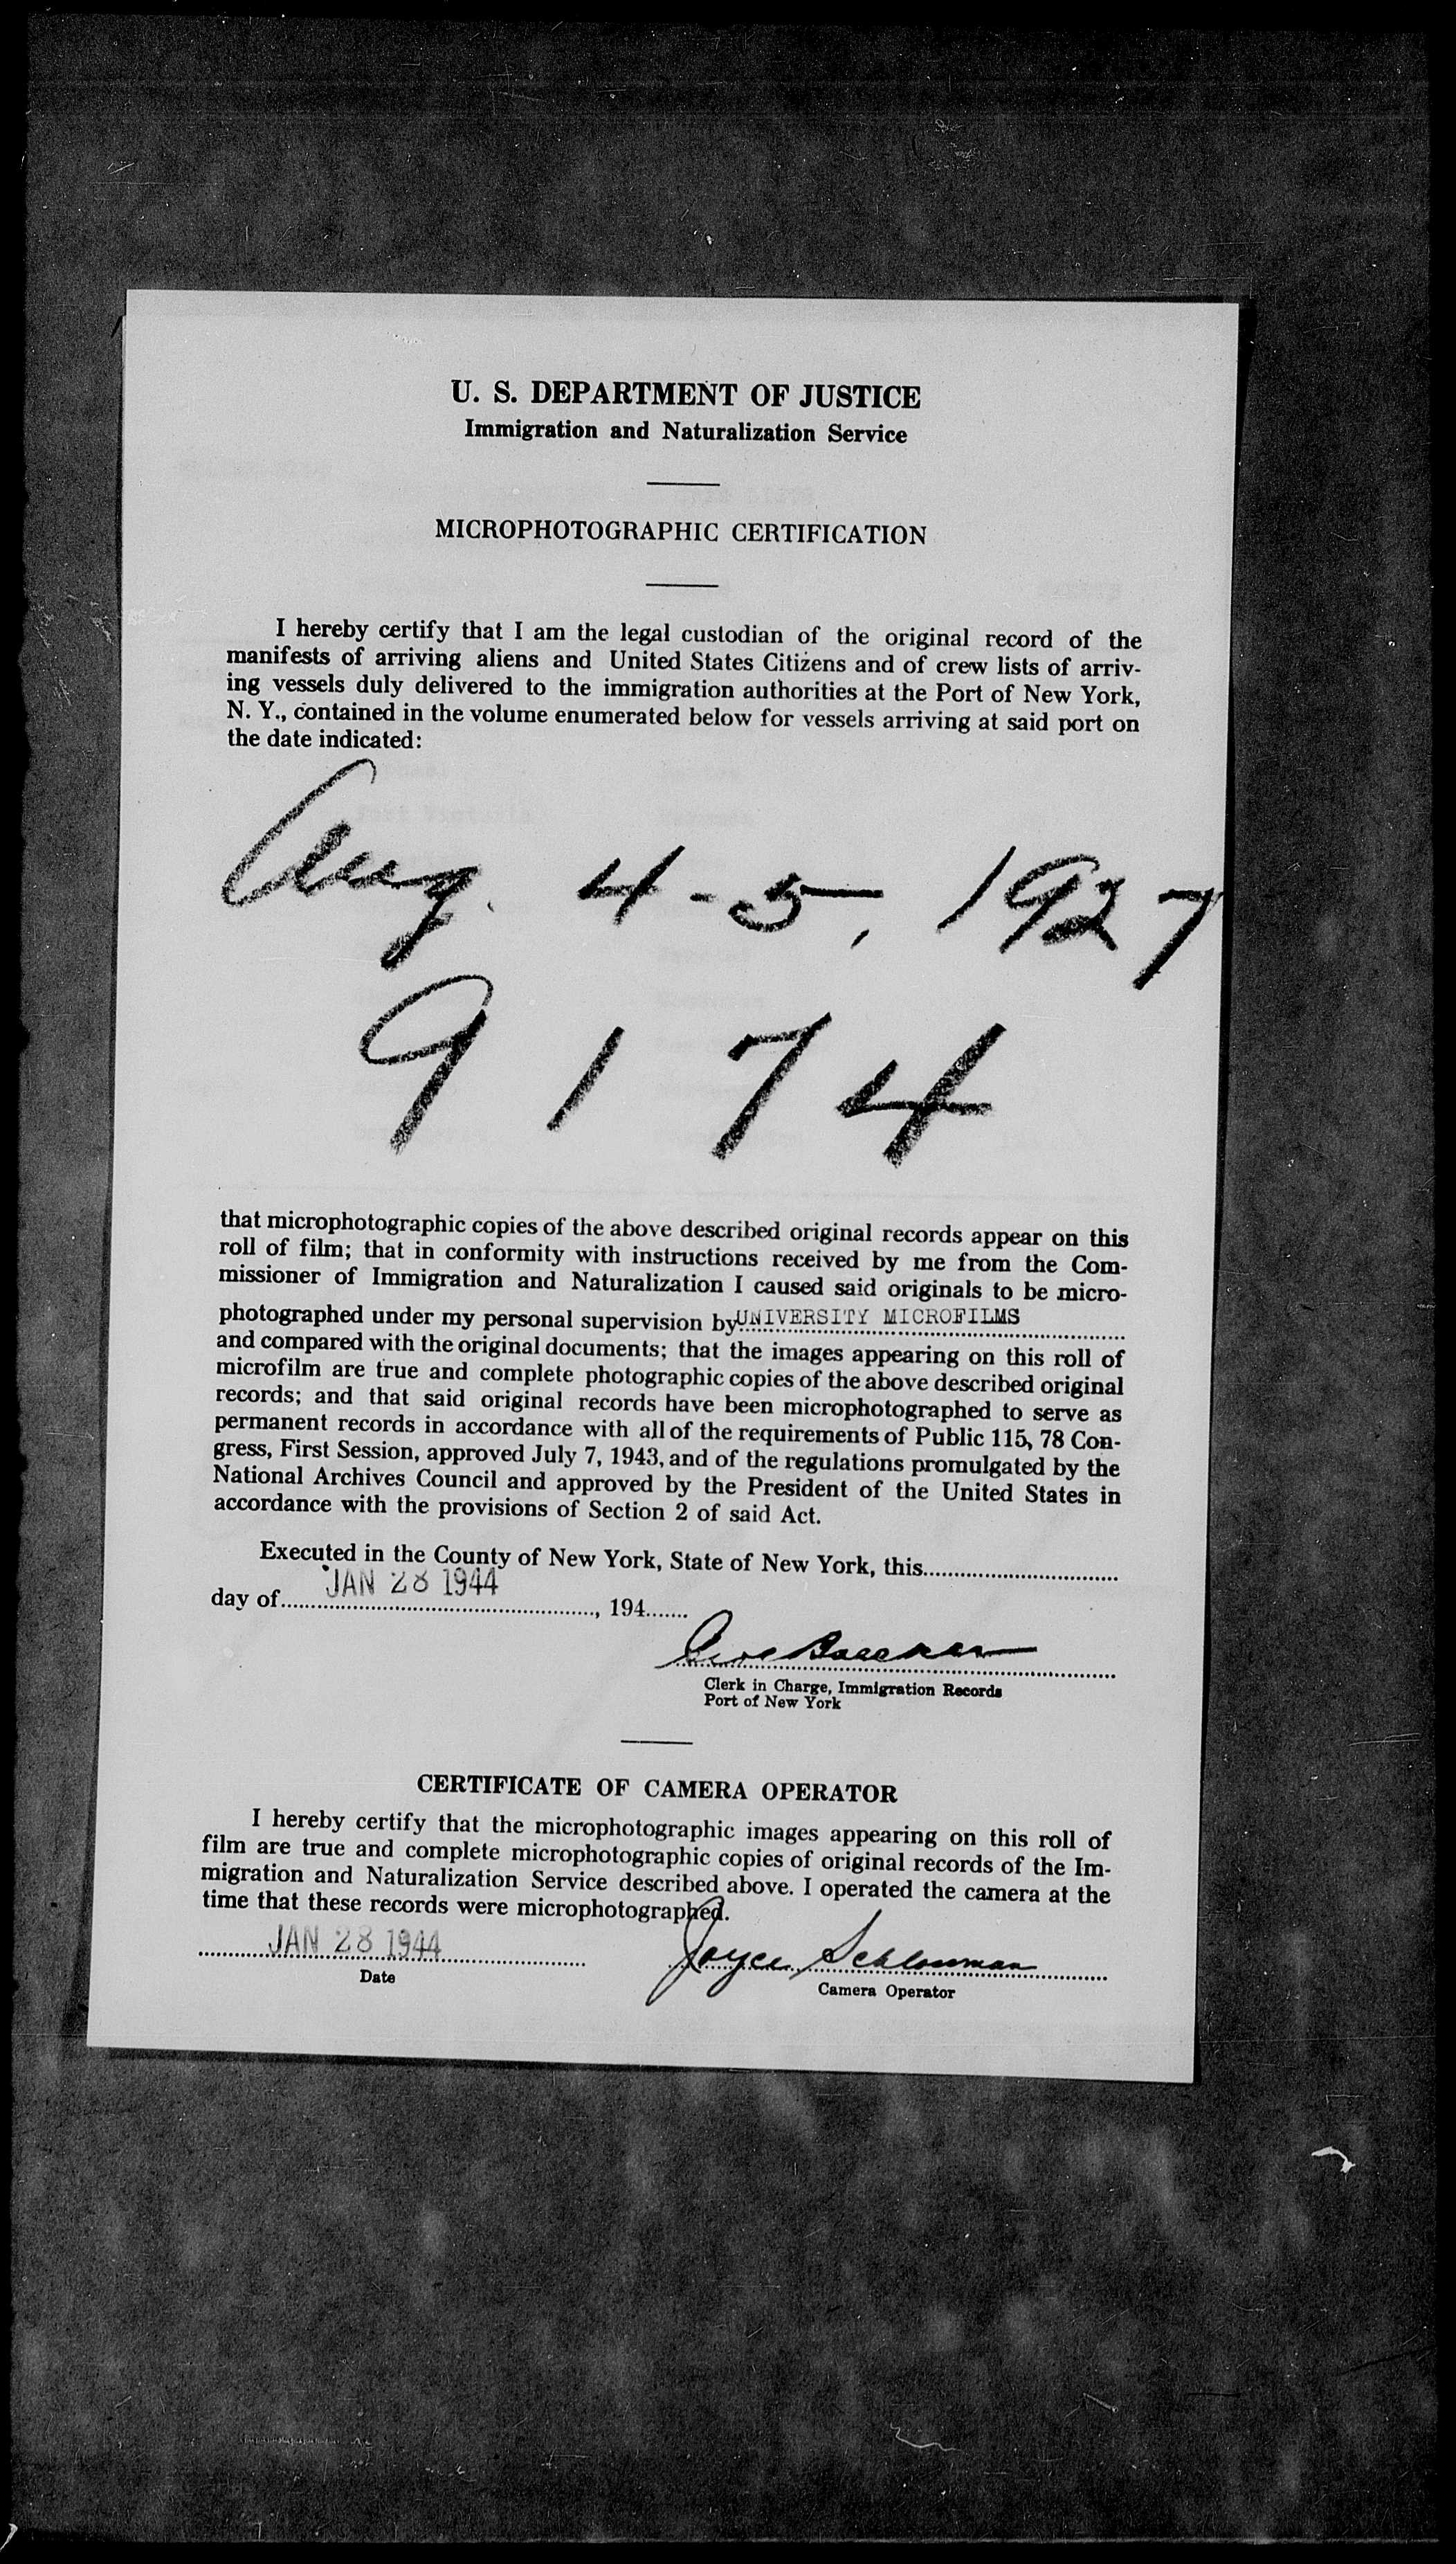 U. S. DEPARTMENT OF JUSTICE
Immigration and Naturalization Service
MICROPHOTOGRAPHIC CERTIFICATION
I hereby certify that I am the legal custodian of the original record of the
manifests of arriving aliens and United States Citizens and of crew lists of arriv-
ing vessels duly delivered to the immigration authorities at the Port of New York,
N. Y., contained in the volume enumerated below for vessels arriving at said port on
the date indicated:
Aug. 4-5, 1927
9174
that microphotographic copies of the above described original records appear on this
roll of film; that in conformity with instructions received by me from the Com-
missioner of Immigration and Naturalization I caused said originals to be micro-
photographed under my personal supervision by UNIVERSITY MICROFILMS
and compared with the original documents; that the images appearing on this roll of
microfilm are true and complete photographic copies of the above described original
records; and that said original records have been microphotographed to serve as
permanent records in accordance with all of the requirements of Public 115, 78 Con-
gress, First Session, approved July 7, 1943, and of the regulations promulgated by the
National Archives Council and approved by the President of the United States in
accordance with the provisions of Section 2 of said Act.
Executed in the County of New York, State of New York, this
JAN 28 1944
day of, 194
Clerk in Charge, Immigration Records
Port of New York
CERTIFICATE OF CAMERA OPERATOR
I hereby certify that the microphotographic images appearing on this roll of
film are true and complete microphotographic copies of original records of the Im-
migration and Naturalization Service described above. I operated the camera at the
time that these records were microphotographed.
JAN 28 1944 Joyce
Date
Camera Operator